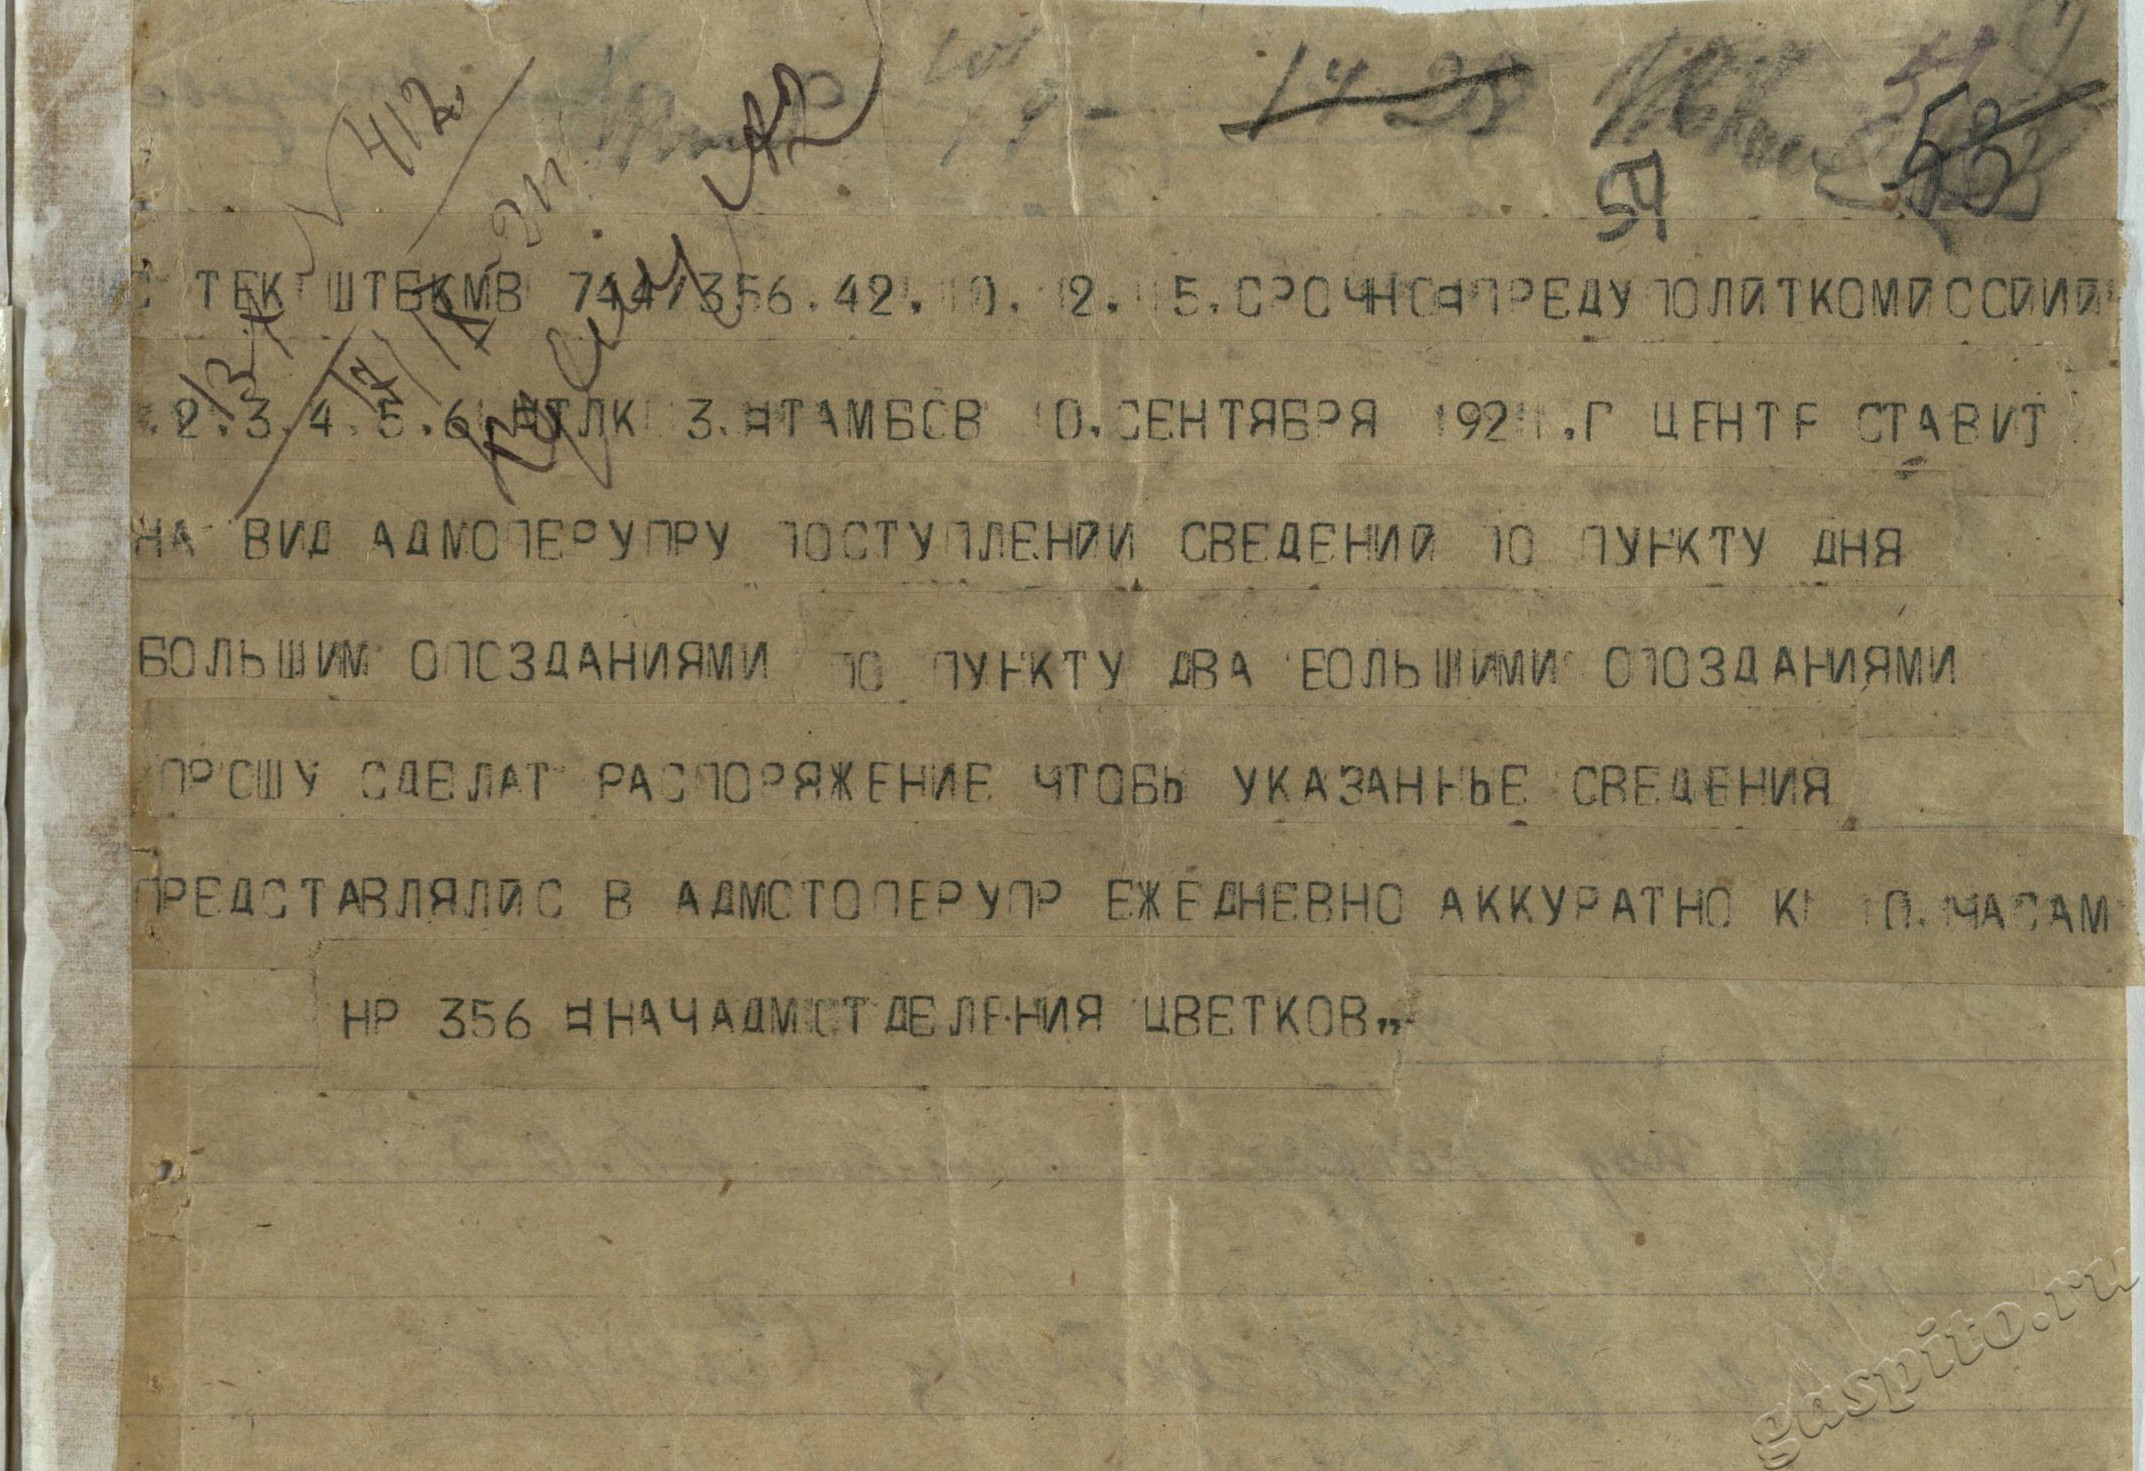 412.
14-28
54
58
С ТЕК ШТЕКМВ 744/356.42. 10. 12. 15. СРОЧНО¤ПРЕДУ ПОЛИТКОМИССИИИ
.2.3.4.5.6 ¤ТЛК 3.¤ТАМБОВ 10.СЕНТЯБРЯ 1921.Г ЦЕНТР СТАВИТ
НА ВИД АДМОПЕРУПРУ ПОСТУПЛЕНИИ СВЕДЕНИЙ ПО ПУНКТУ ДНЯ
БОЛЬШИМ ОПОЗДАНИЯМИ ПО ПУНКТУ ДВА БОЛЬШИМИ ОПОЗДАНИЯМИ
ПРОШУ СДЕЛАТ РАСПОРЯЖЕНИЕ ЧТОБЫ УКАЗАННЫЕ СВЕДЕНИЯ
ПРЕДСТАВЛЯЛИС В АДМОТОПЕРУПР ЕЖЕДНЕВНО АККУРАТНО К 10. ЧАСАМ
НР 356 ¤НАЧАДМОТДЕЛЕНИЯ ЦВЕТКОВ„-
gaspito.ru